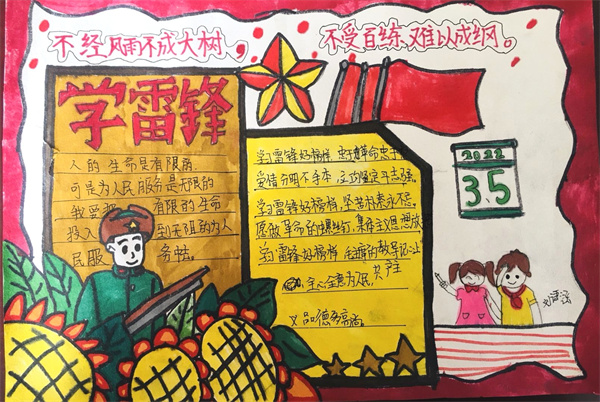 不经风雨不成大树，
不受百练，难以成纲。
学雷锋
人的生命是有限的
可是为人民服务是无限的
我爱把 有限的生命
投入 到无限的为人
民服 务去。
学习雷锋好榜样 忠于革命忠于
爱恨分明不
学习雷锋好榜样 艰苦朴素永不
愿做革命的螺丝钉，集体主义思想放
学习雷锋好榜样
全心全意为人民，共产主
义品德多高尚。
2022
3.5